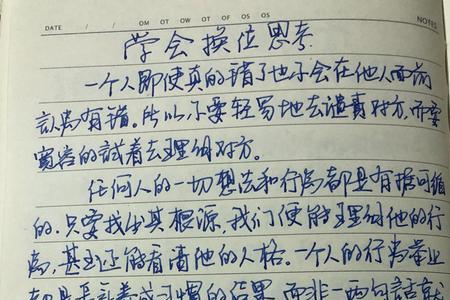 DATE / / OM OT OW OT OF OS OS NOTES
学会换位思考
一个人即使真的错了也不会在他人面前
认为有错。所以不要轻易地去谴责对方,而要
宽容的试着去理解对方。
任何人的一切想法和行为都是有据可循
的.只要找出其根源,我们便能理解他的行
为,甚至还能看清他的人格。一个人的行为举止
都是 养成习惯的结果,而非一两句话就